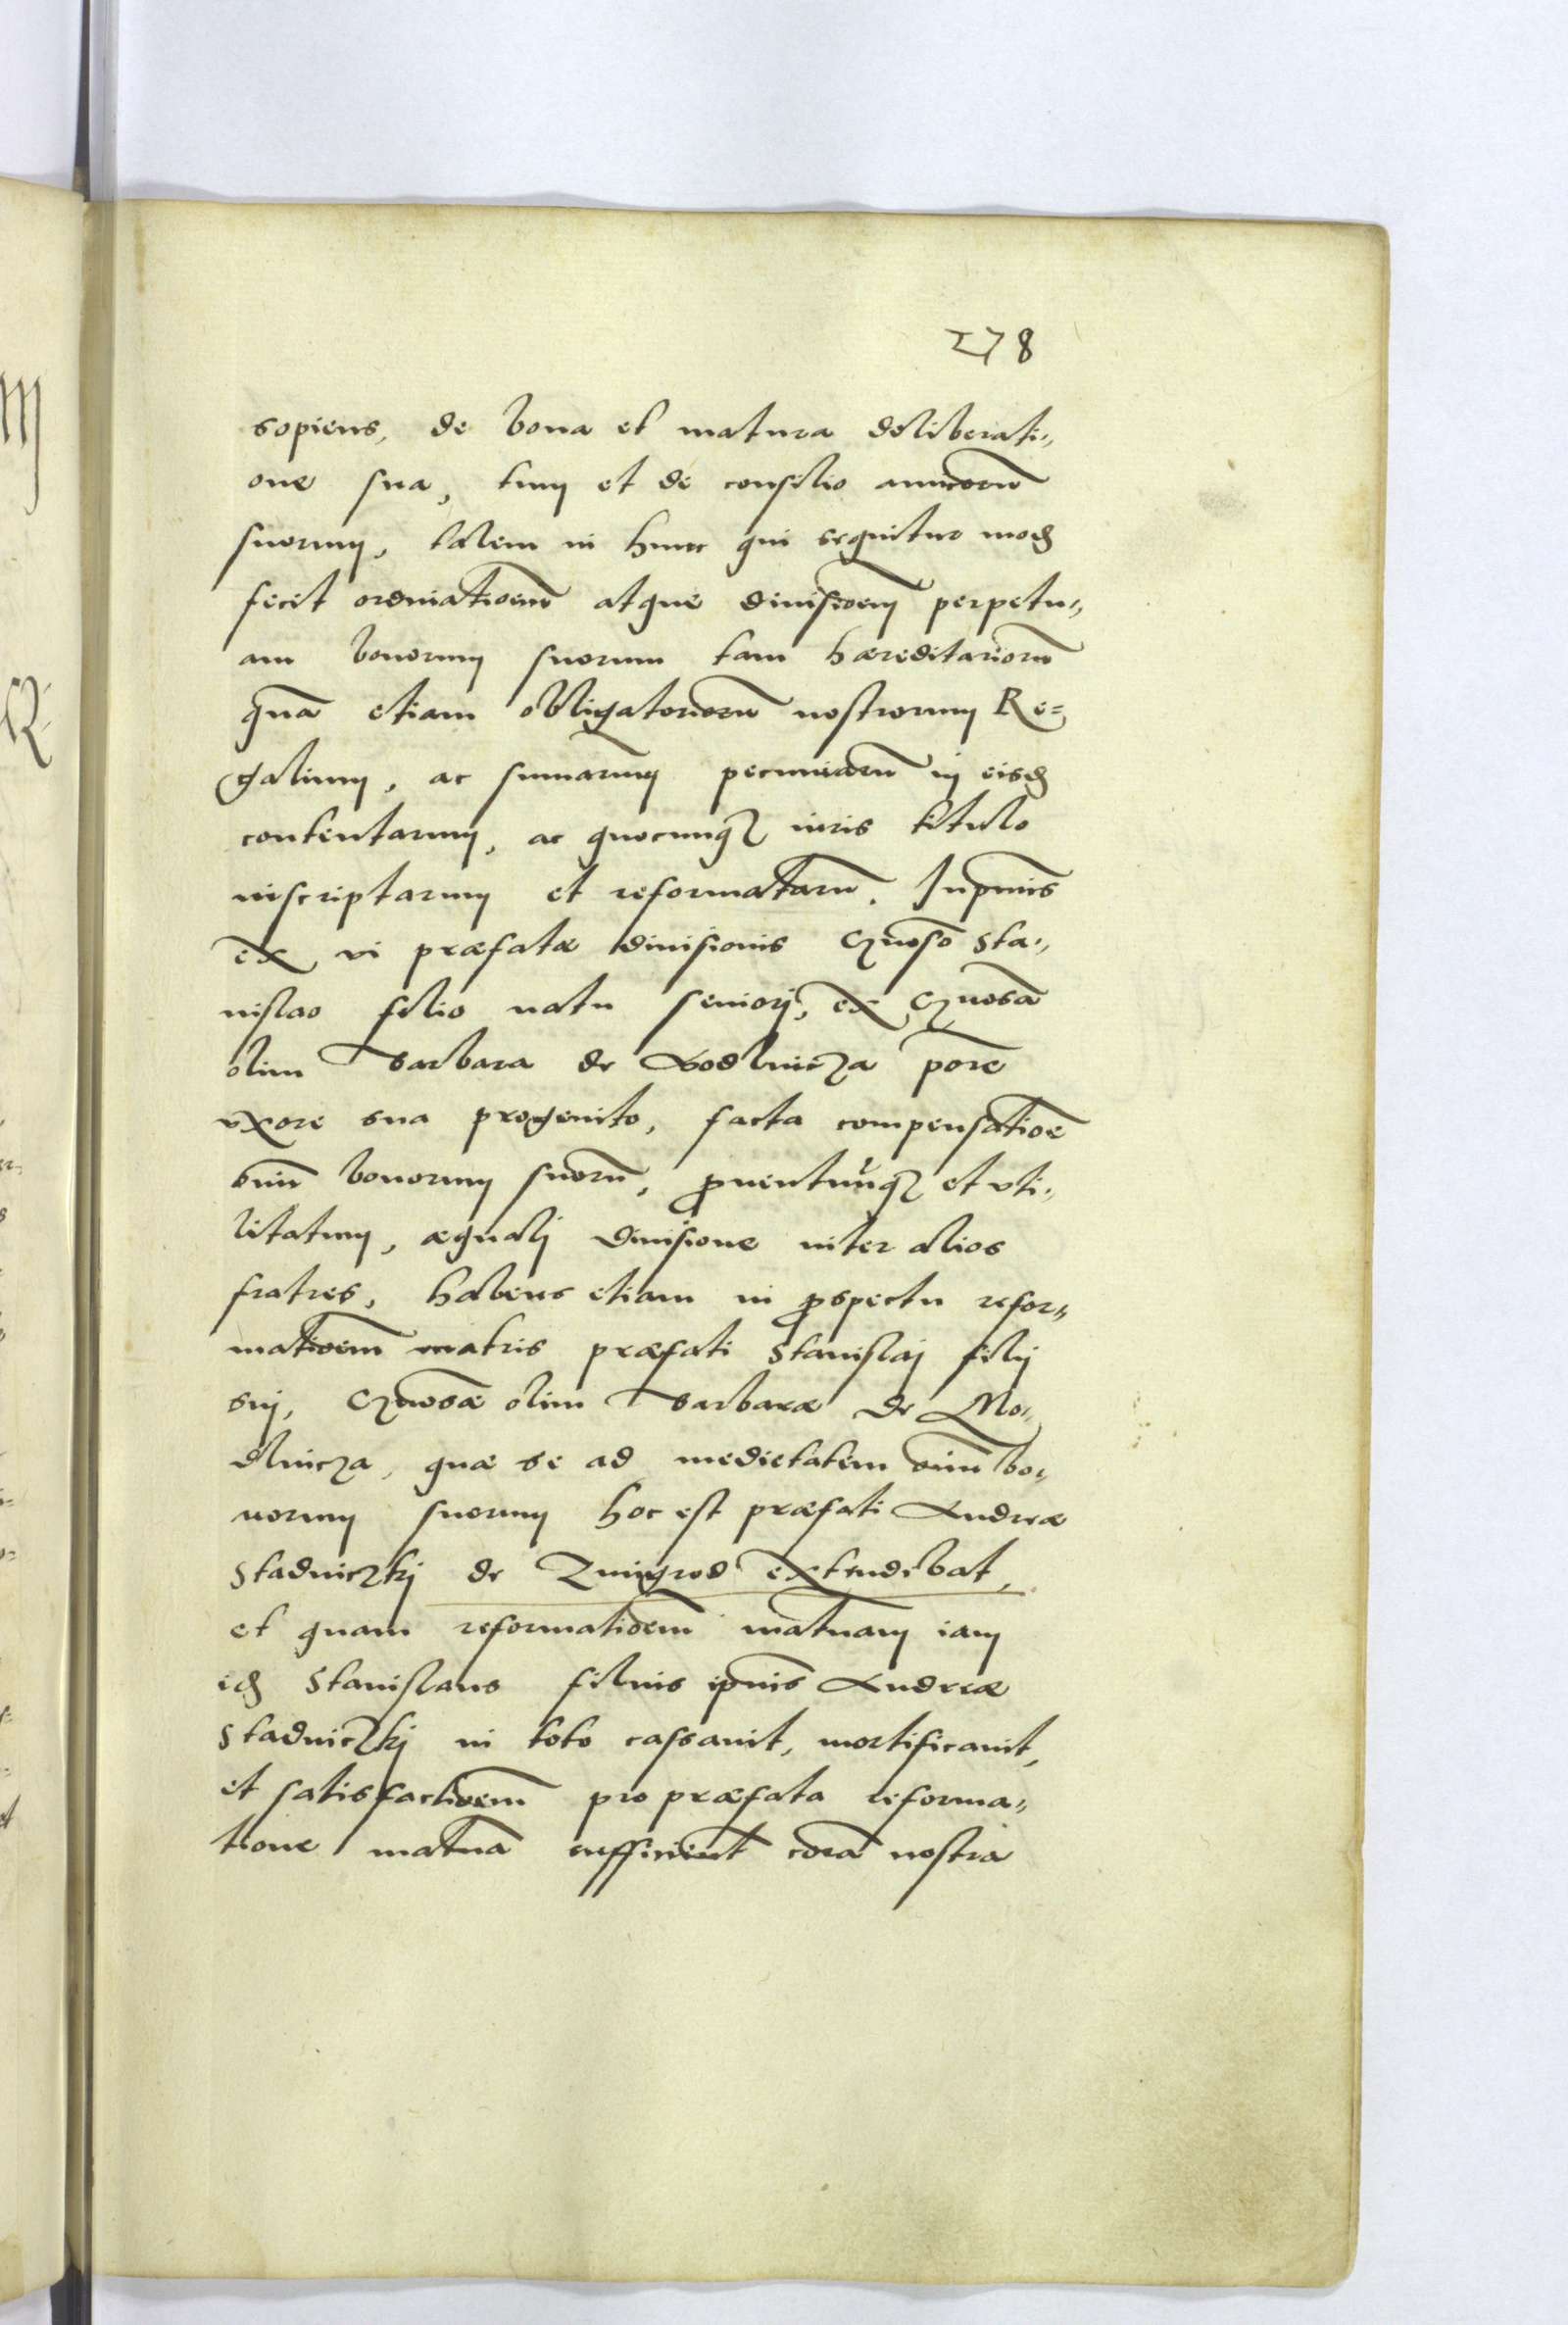 278
sopiens, de bona et matura deliberati-
one sua, tum et de consilio amicorū
suorum, talem in hunc qui sequitur modū
fecit ordinatioem̄ atque divisioem̄ perpetu-
am bonorum suorum tam hæreditariorū
quā etiam obligatoriorū nostrorum Re=
galium, ac sumarum pecuniarū in eisd
contentarum, ac quocunqȝ iuris titulo
inscriptarum et reformatarū. Inprimis
ex vi præfatæ divisionis Gnōso Sta-
nislao filio natu seniorj, ex Gnōsā
olim Barbara de Modlnicza pōre
vxore sua progenito, facta compensatioē
oīm̄ bonorum suorū, proventuūqȝ et vti-
litatum, æqualj divisione inter alios
fratres, habens etiam in prospectu refor-
matioem̄ matris præfati Stanislaj filij
suj, Gnōsæ olim Barbaræ de Mo-
dlnicza, quæ se ad medietatem oīm̄ bo-
norum suorum hoc est præfati Andreæ
Stadniczkj de Zmigrod extendebat,
et quam reformatioem̄ mat̄nam iam
id Stanislaus filius ipius Andreæ
Stadniczkj in toto cassavit, mortificavit,
et satisfactioem̄ pro præfata reforma-
tione mat̄na sufficient corā nostra